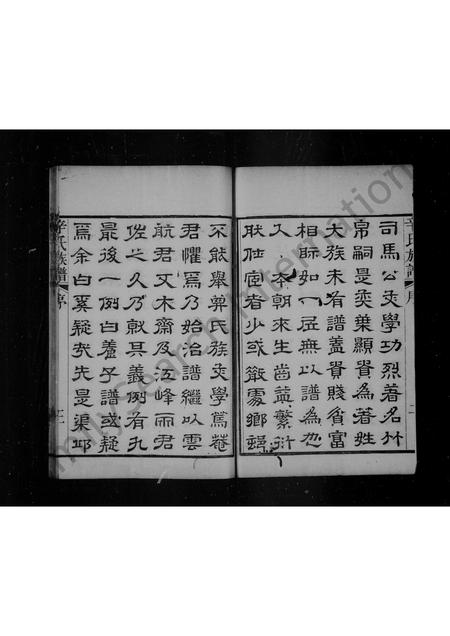 辛氏族譜 序 二
司馬公史學功烈著名
帛嗣是奕葉顯貴為著姓
大族未有譜蓋貴賤貧富
相眎如一居無以譜為
入 本朝來生齒繁衍
仕宦者少或散處鄉
不能舉其氏族史學篤菴
君懼焉乃始治譜繼以雲
航君又木齋及江峰而君
佐之久乃就其義例有孔
最後一例曰蓋子譜或疑
焉余曰奚疑哉先是渠邱
辛氏族譜 序 三
Family Search International